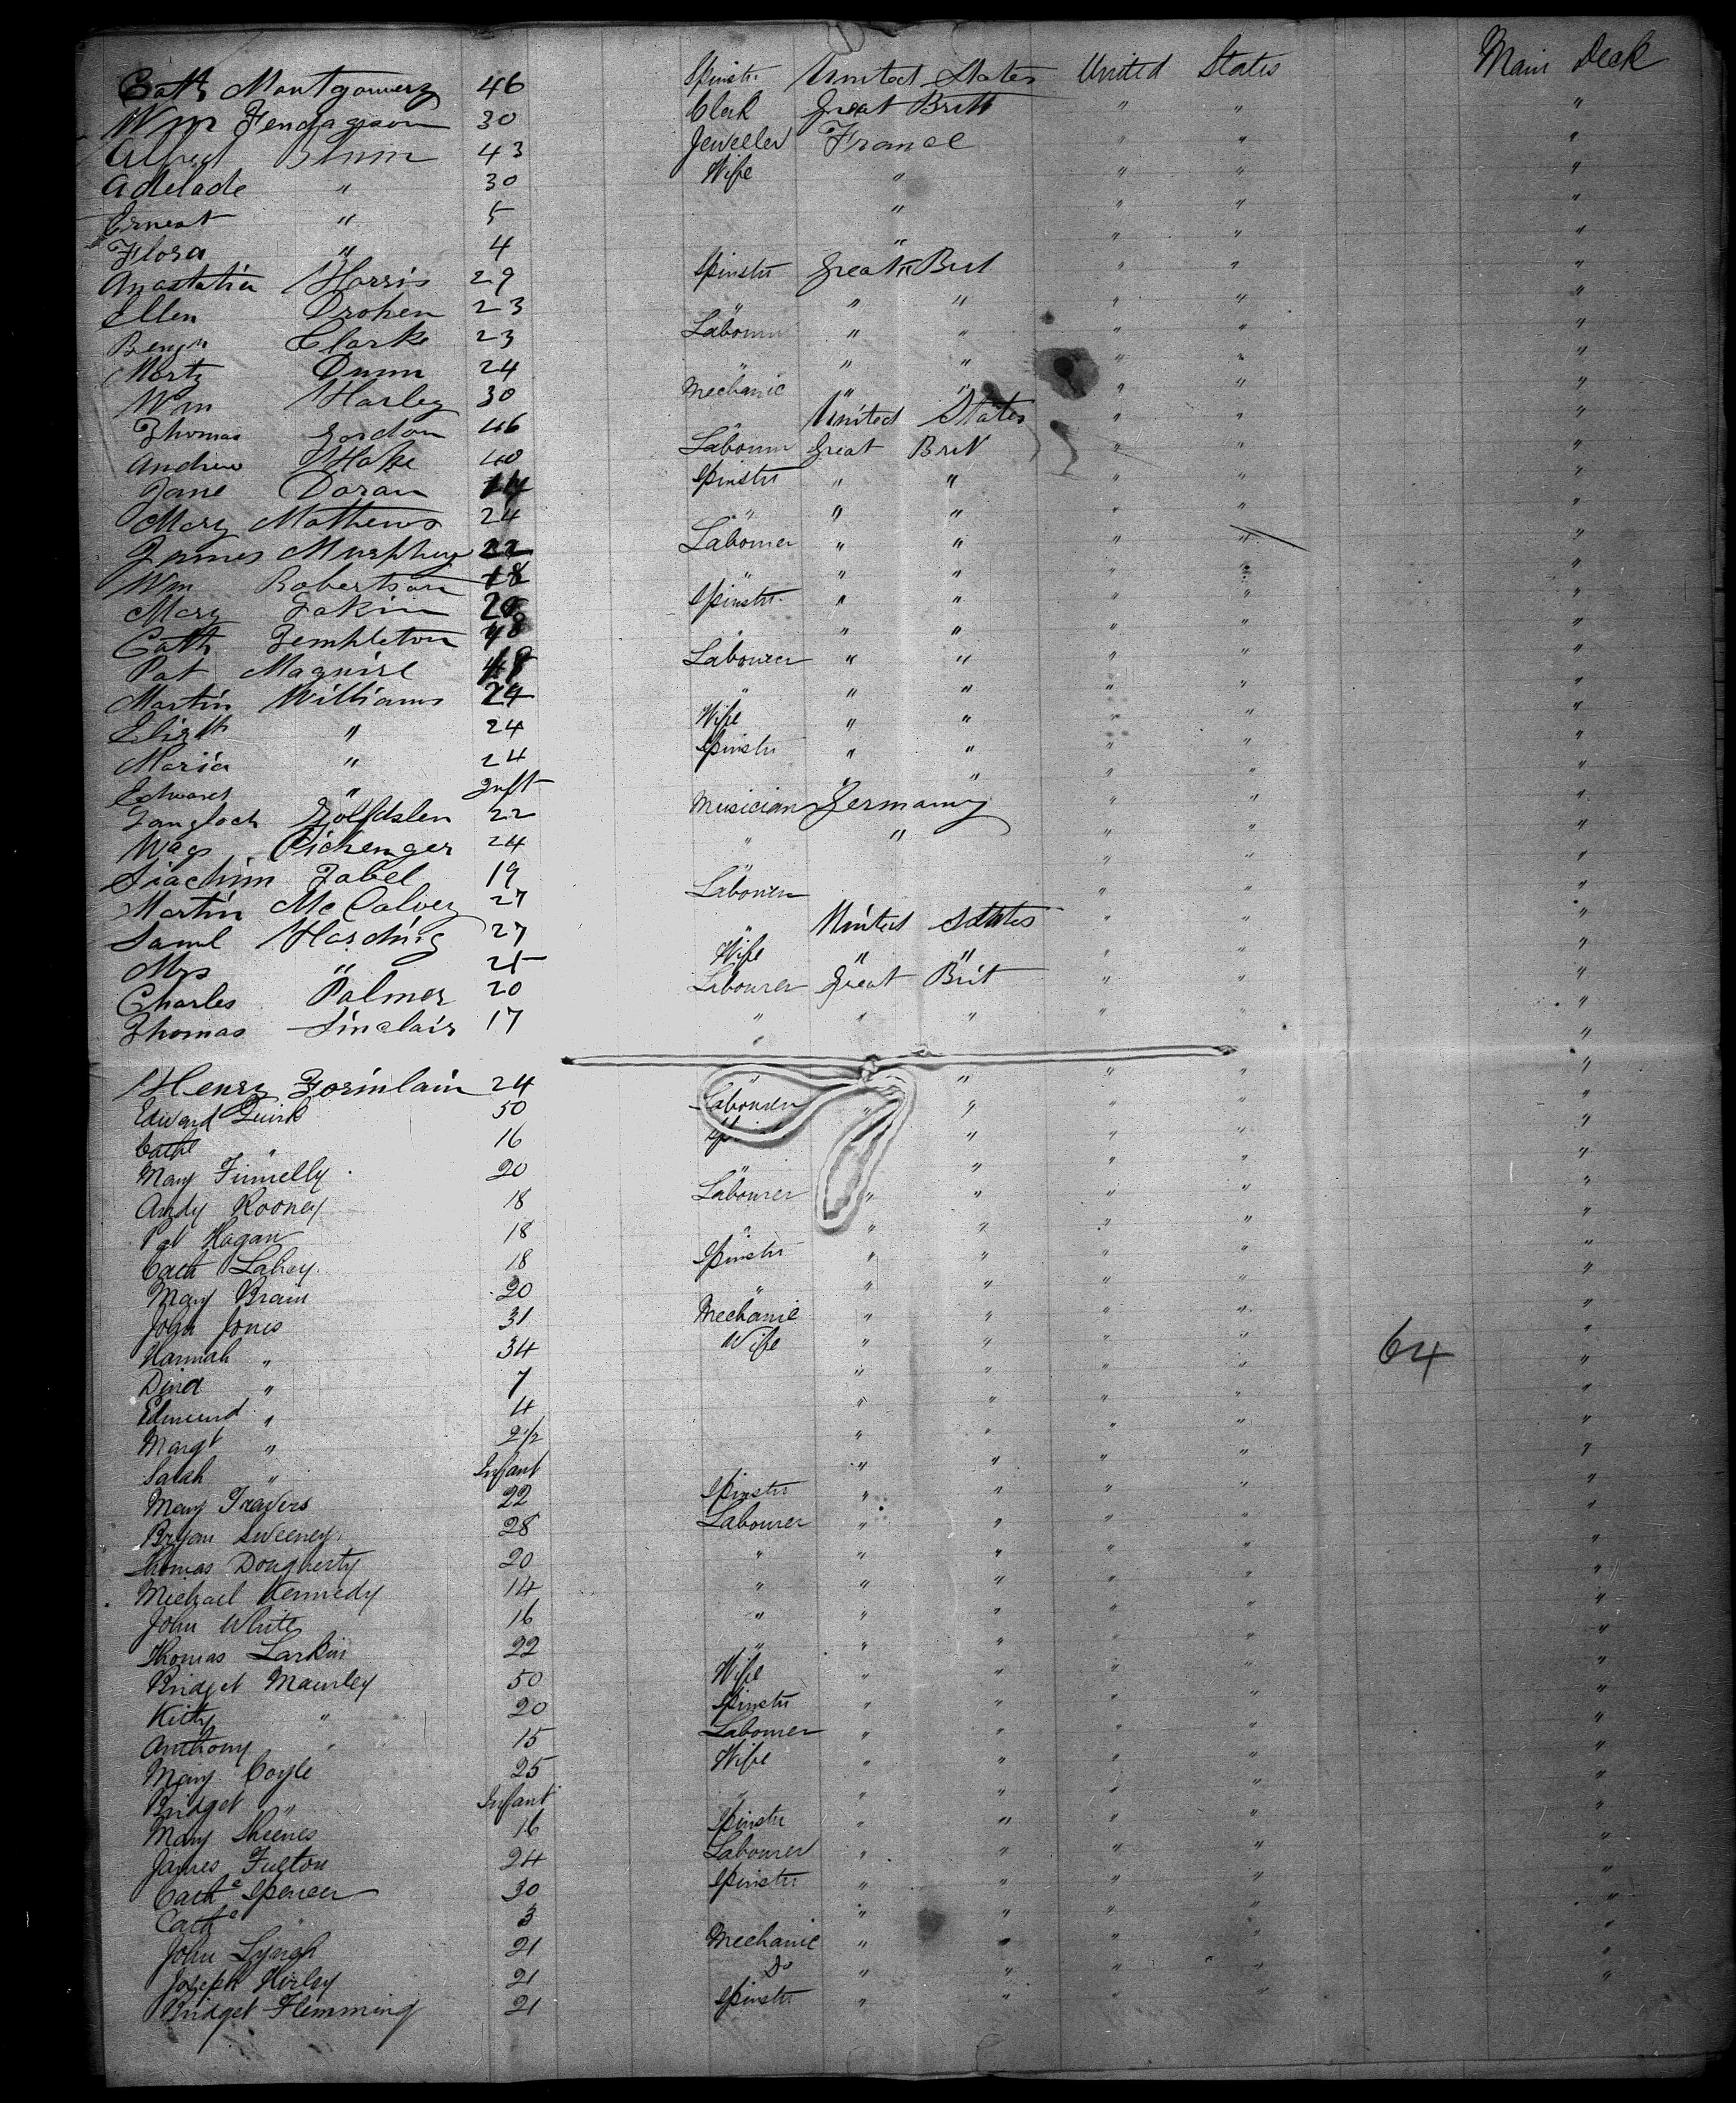 Cath Montgomery 46 Spinstr United States United States Main Deck
Wm Fendagson 30 Clerk Great Britt " " "
Alfred Blum 43 Jeweller France " " "
Adelade " 30 Wife " " " "
Ernest " 5 " " " "
Flora " 4 " " " "
Anastatia Harris 29 Spinstr Great Brit " " "
Ellen Drohen 23 " " " " " "
Benjn Clarke 23 Labourer " " " " "
Mortz Dunn 24 " " " " " "
Wm Harley 30 Mechanic " " " " "
Thomas Gordon 46 " United States " " "
Andrew Hake 40 Labourer Great Brit " " "
Jane Doran 14 Spinstr " " " " "
Mary Mathews 24 " " " " " "
James Murphy 22 Labourer " " " " "
Wm Robertson 18 " " " " " "
Mary Eakin 20 Spinstr " " " " "
Cath Templeton 18 " " " " " "
Pat Maguire 48 Labourer " " " " "
Martin Williams 24 " " " " " "
Elizth " 24 Wife " " " " "
Maria " 24 Spinstr " " " " "
Edward " Inft " " " " "
Golfdslen 22 Musician Germany " " "
Wag Eichenger 24 " " " " "
Siachim Zabel 19 " " " "
Martin McCalvey 27 Labourer " " "
Saml Harding 27 " United States " " "
Mrs " 25 Wife " " " " "
Charles Palmer 20 Labourer Great Brit " " "
Thomas Sinclair 17 " " " " " "
Henry 24 " " " " "
Edward Quirk 50 Labourer " " " " "
Cathe " 16 " " " "
Mary Finnelly 20 " " " " "
Andy Rooney 18 Labourer " " " " "
Pat Hagan 18 " " " " " "
Cath Lahey 18 Spinstr " " " " "
Mary Brain 20 " " " " " "
John Jones 31 Mechanic " " " " "
Hannah " 34 Wife " " " " 64 "
Dina " 7 " " " " "
Edmund " 4 " " " " "
Margt " 2½ " " " " "
Sarah " Infant " " " " "
Mary Travers 22 Spinstr " " " " "
Bryan Sweeney 28 Labourer " " " " "
Thomas Dougherty 20 " " " " " "
Michael Kennedy 14 " " " " " "
John White 16 " " " " " "
Thomas Larkin 22 " " " " " "
Bridget Mawley 50 Wife " " " " "
Kitty " 20 Spinstr " " " " "
Anthony " 15 Labourer " " " " "
Mary Coyle 25 Wife " " " " "
Bridget " Infant " " " " " "
Mary Skeenes 16 Spinstr " " " " "
James Fulton 24 Labourer " " " " "
Cathe Spencer 30 Spinstr " " " " "
Cathe " 3 " " " " "
John Lynch 21 Mechanic " " " " "
Joseph Hirley 21 Do " " " " "
Bridget Flemming 21 Spinstr " " " "